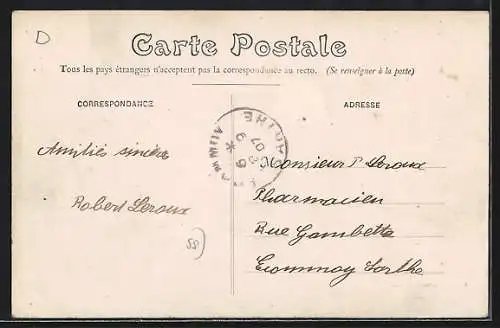 D
Carte Postale
Tous les pays étrangers n'acceptent pas la correspondance au recto. (Se renseigner à la poste)
CORRESPONDANCE
ADRESSE
Amitiés sincères
Robert Leroux
Monsieur P. Leroux
Pharmacien
Rue Gambetta
Ecommoy Sarthe
SARTHE
07
88